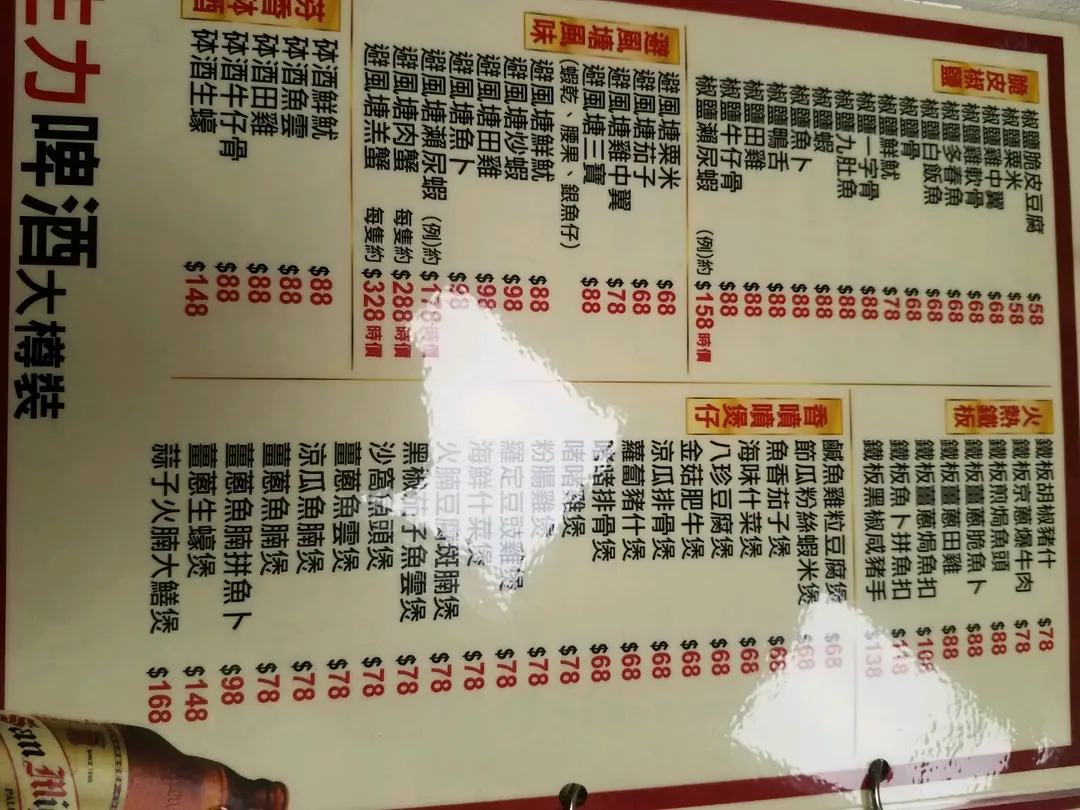 脆皮椒鹽
椒鹽脆皮豆腐 $58
椒鹽粟米 $58
椒鹽雞中翼 $68
椒鹽雞軟骨 $68
椒鹽多春魚 $68
椒鹽白飯魚 $68
椒鹽骨 $68
椒鹽鮮魷 $78
椒鹽一字骨 $88
椒鹽九肚魚 $88
椒鹽蝦 $88
椒鹽魚卜 $88
椒鹽鴨舌 $88
椒鹽田雞 $88
椒鹽牛仔骨 $88
椒鹽瀨尿蝦 (例)約 $158時價
避風塘風味
避風塘粟米 $68
避風塘茄子 $68
避風塘雞中翼 $78
避風塘三寶 $88
(蝦乾、腰果、銀魚仔)
避風塘鮮魷 $88
避風塘炒蝦 $98
避風塘田雞 $98
避風塘魚卜 $98
避風塘瀨尿蝦 (例)約 $178時價
避風塘肉蟹 每隻約 $288時價
避風塘羔蟹 每隻約 $328時價
芬香砵酒
砵酒鮮魷 $88
砵酒魚雲 $88
砵酒田雞 $88
砵酒牛仔骨 $88
砵酒生蠔 $148
火熱鐵板
鐵板胡椒豬什 $78
鐵板京蔥爆牛肉 $78
鐵板煎焗魚頭 $88
鐵板薑蔥脆魚卜 $88
鐵板薑蔥田雞 $88
鐵板薑蔥焗魚扣 $108
鐵板魚卜拼魚扣 $118
鐵板黑椒咸豬手 $138
香噴噴煲仔
鹹魚雞粒豆腐煲 $68
節瓜粉絲蝦米煲 $68
魚香茄子煲 $68
海味什菜煲 $68
八珍豆腐煲 $68
金菇肥牛煲 $68
涼瓜排骨煲 $68
蘿蔔豬什煲 $68
啫啫排骨煲 $68
啫啫雞煲 $78
粉腸雞煲 $78
羅定豆豉雞煲 $78
海鮮什菜煲 $78
火腩豆腐斑腩煲 $78
黑椒茄子魚雲煲 $78
沙窩魚頭煲 $78
薑蔥魚雲煲 $78
涼瓜魚腩煲 $78
薑蔥魚腩煲 $78
薑蔥魚腩拼魚卜 $98
薑蔥生蠔煲 $148
蒜子火腩大鱔煲 $168
生力啤酒大樽裝
San Mi
SINCE 1890